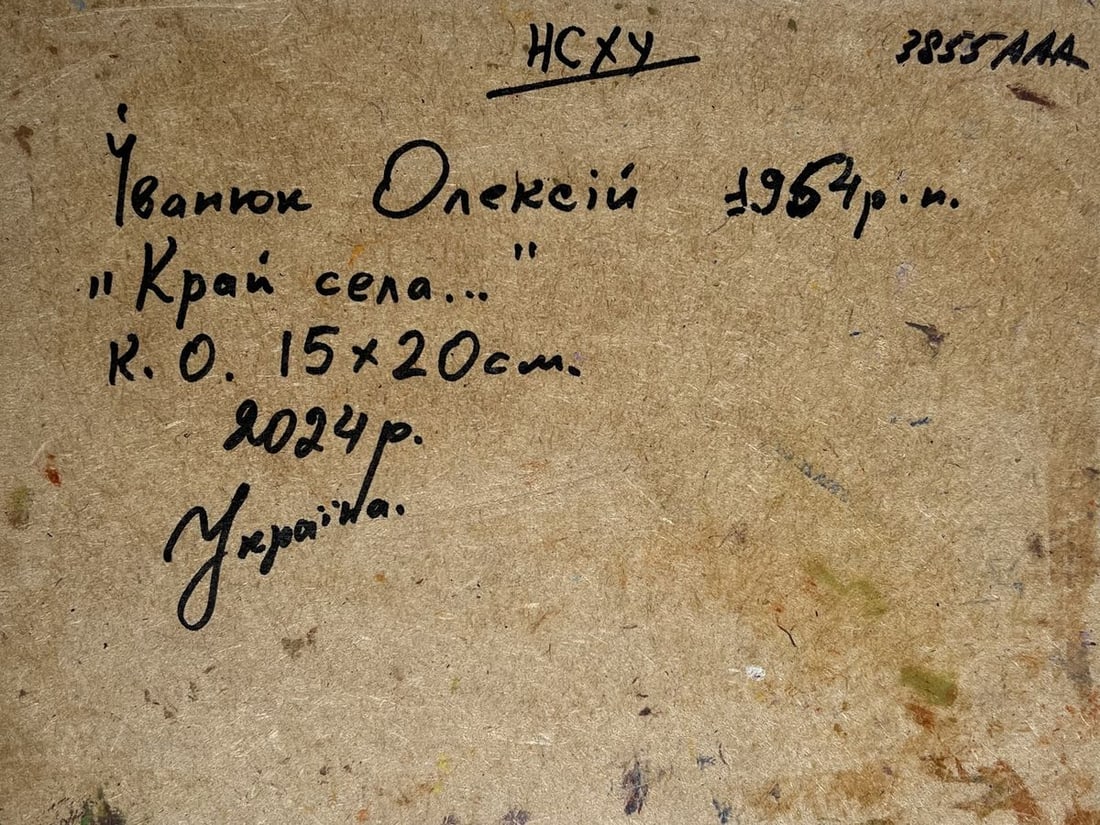 НСХУ 3855 ААА
Іванюк Олексій 1954 р.н.
„Край села..."
К. О. 15х20см.
2024 р.
Україна.